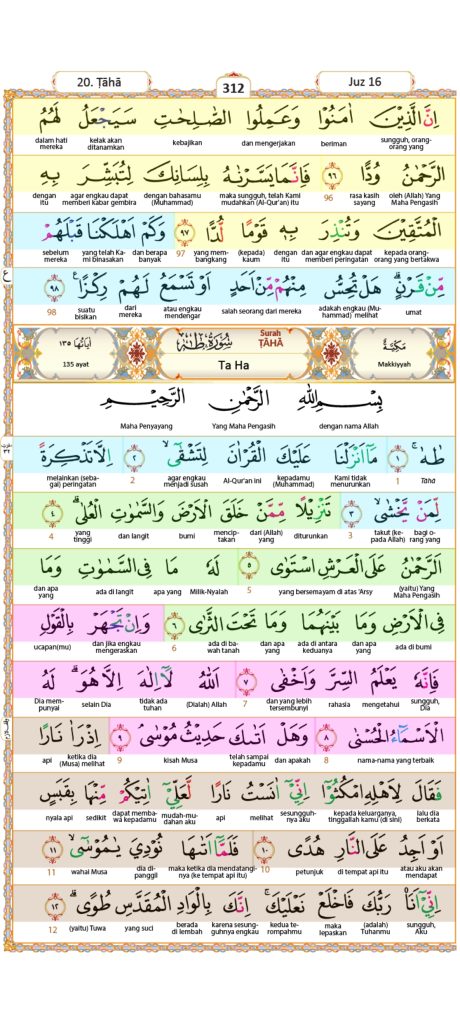 20. Ṭāhā
312
Juz 16
اِنَّ الَّذِيْنَ اٰمَنُوْا وَعَمِلُوا الصّٰلِحٰتِ سَيَجْعَلُ لَهُمُ
sungguh, orang-orang yang beriman dan mengerjakan kebajikan kelak akan ditanamkan dalam hati mereka
الرَّحْمٰنُ وُدًّا ٩٦ فَاِنَّمَا يَسَّرْنٰهُ بِلِسَانِكَ لِتُبَشِّرَ بِهِ
oleh (Allah) Yang Maha Pengasih rasa kasih sayang 96 maka sungguh, telah Kami mudahkan (Al-Qur'an) itu dengan bahasamu (Muhammad) agar engkau dapat memberi kabar gembira dengan itu
الْمُتَّقِيْنَ وَتُنْذِرَ بِهٖ قَوْمًا لُّدًّا ٩٧ وَكَمْ اَهْلَكْنَا قَبْلَهُمْ
kepada orang-orang yang bertakwa dan agar engkau dapat memberi peringatan dengan itu (kepada) kaum yang membangkang 97 dan berapa banyak yang telah Kami binasakan sebelum mereka
مِّنْ قَرْنٍۗ هَلْ تُحِسُّ مِنْهُمْ مِّنْ اَحَدٍ اَوْ تَسْمَعُ لَهُمْ رِكْزًا ࣖ ٩٨
umat adakah engkau (Muhammad) melihat salah seorang dari mereka atau engkau mendengar dari mereka suatu bisikan 98
ع
مَكِّيَّةٌ
Makkiyyah
سُوْرَةُ طٰهٰ
Surah ṬĀHĀ
Ta Ha
اٰيَاتُهَا ١٣٥
135 ayat
بِسْمِ اللّٰهِ الرَّحْمٰنِ الرَّحِيْمِ
dengan nama Allah Yang Maha Pengasih Maha Penyayang
طٰهٰ ۚ ١ مَآ اَنْزَلْنَا عَلَيْكَ الْقُرْاٰنَ لِتَشْقٰٓى ۙ ٢ اِلَّا تَذْكِرَةً
Ṭāhā 1 Kami tidak menurunkan kepadamu (Muhammad) Al-Qur'an ini agar engkau menjadi susah 2 melainkan (sebagai) peringatan
لِّمَنْ يَّخْشٰى ۙ ٣ تَنْزِيْلًا مِّمَّنْ خَلَقَ الْاَرْضَ وَالسَّمٰوٰتِ الْعُلٰى ۗ ٤
bagi orang yang takut (kepada Allah) 3 diturunkan dari (Allah) yang menciptakan bumi dan langit yang tinggi 4
اَلرَّحْمٰنُ عَلَى الْعَرْشِ اسْتَوٰى ٥ لَهٗ مَا فِى السَّمٰوٰتِ وَمَا
(yaitu) Yang Maha Pengasih yang bersemayam di atas 'Arsy 5 Milik-Nyalah apa yang ada di langit dan apa yang
فِى الْاَرْضِ وَمَا بَيْنَهُمَا وَمَا تَحْتَ الثَّرٰى ٦ وَاِنْ تَجْهَرْ بِالْقَوْلِ
ada di bumi dan apa yang ada di antara keduanya dan apa yang ada di bawah tanah 6 dan jika engkau mengeraskan ucapan(mu)
فَاِنَّهٗ يَعْلَمُ السِّرَّ وَاَخْفٰى ٧ اَللّٰهُ لَآ اِلٰهَ اِلَّا هُوَۗ لَهُ
sungguh, Dia mengetahui rahasia dan yang lebih tersembunyi 7 (Dialah) Allah tidak ada tuhan selain Dia Dia mempunyai
الْاَسْمَاۤءُ الْحُسْنٰى ٨ وَهَلْ اَتٰىكَ حَدِيْثُ مُوْسٰى ۘ ٩ اِذْ رَاٰ نَارًا
nama-nama yang terbaik 8 dan apakah telah sampai kepadamu kisah Musa 9 ketika dia (Musa) melihat api
فَقَالَ لِاَهْلِهِ امْكُثُوْٓا اِنِّيْٓ اٰنَسْتُ نَارًا لَّعَلِّيْٓ اٰتِيْكُمْ مِّنْهَا بِقَبَسٍ
lalu dia berkata kepada keluarganya, tinggallah kamu (di sini) sesungguhnya aku melihat api mudah-mudahan aku dapat membawa kepadamu sedikit nyala api
اَوْ اَجِدُ عَلَى النَّارِ هُدًى ١٠ فَلَمَّآ اَتٰىهَا نُوْدِيَ يٰمُوْسٰٓى ۙ ١١
atau aku akan mendapat di tempat api itu petunjuk 10 maka ketika dia mendatanginya (ke tempat api itu) dia dipanggil wahai Musa 11
اِنِّيْٓ اَنَا۠ رَبُّكَ فَاخْلَعْ نَعْلَيْكَۚ اِنَّكَ بِالْوَادِ الْمُقَدَّسِ طُوًى ۗ ١٢
sungguh, Aku (adalah) Tuhanmu maka lepaskan kedua terompahmu karena sesungguhnya engkau berada di lembah yang suci (yaitu) Tuwa 12